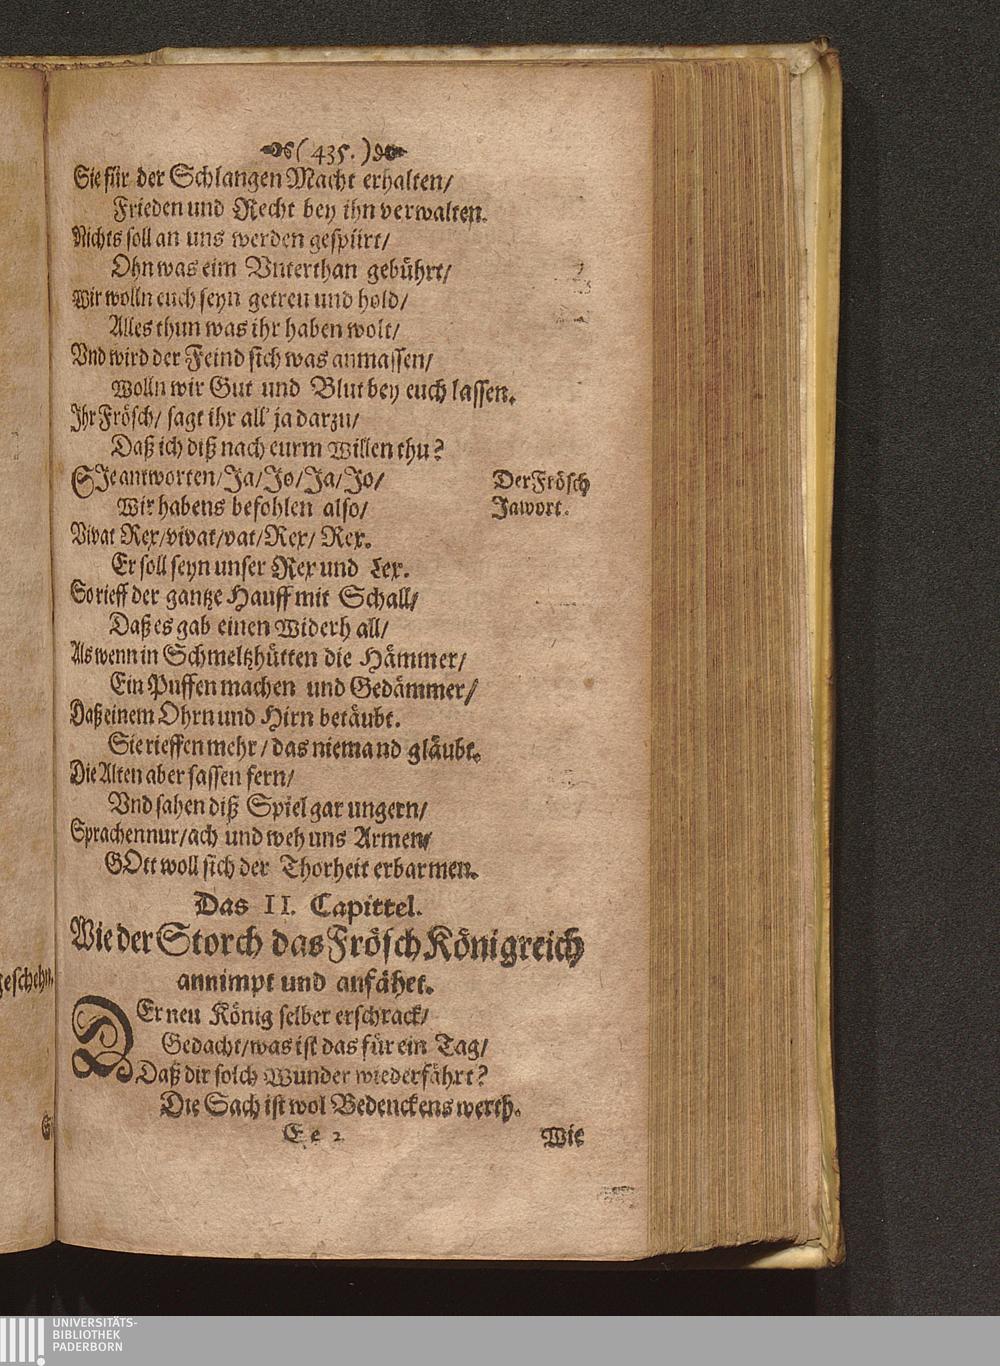 (435.)
Sie für der Schlangen Macht erhalten/
Frieden und Recht bey ihn verwalten.
Nichts soll an uns werden gespürt/
Ohn was eim Vnterthan gebührt/
Wir wolln euch seyn getreu und hold/
Alles thun was ihr haben wolt/
Vnd wird der Feind sich was anmassen/
Wolln wir Gut und Blut bey euch lassen.
Ihr Frösch/ sagt ihr all' ja darzu/
Daß ich diß nach eurm Willen thu?
SIe antworten/Ja/Jo/Ja/Jo/
Der Frösch
Jawort.
Wir habens befohlen also/
Vivat Rex/vivat/vat/Rex/ Rex.
Er soll seyn unser Rex und Lex.
So rieff der gantze Hauff mit Schall/
Daß es gab einen Widerh all/
Als wenn in Schmeltzhütten die Hämmer/
Ein Puffen machen und Gedämmer/
Daß einem Ohrn und Hirn betäubt.
Sie rieffen mehr/das niemand gläubt.
Die Alten aber sassen fern/
Vnd sahen diß Spiel gar ungern/
Sprachen nur/ach und weh uns Armen/
GOtt woll sich der Thorheit erbarmen.
Das II. Capittel.
Wie der Storch das Frösch Königreich
annimpt und anfähet.
geschehn.
DEr neu König selber erschrack/
Gedacht/was ist das für ein Tag/
Daß dir solch Wunder wiederfährt?
Die Sach ist wol Bedenckens werth.
Ee 2
Wie
UNIVERSITÄTS-
BIBLIOTHEK
PADERBORN